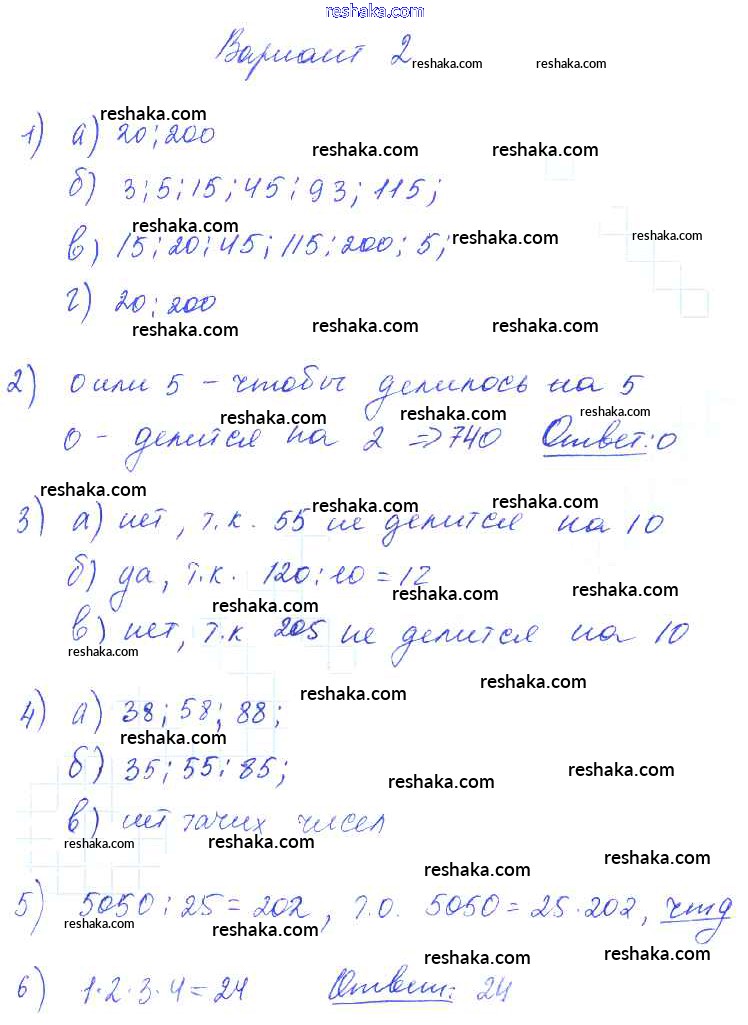 reshaka.com
Вариант 2 reshaka.com reshaka.com
reshaka.com
1) а) 20; 200
reshaka.com reshaka.com
б) 3; 5; 15; 45; 93; 115;
reshaka.com reshaka.com reshaka.com
в) 15; 20; 45; 115; 200; 5;
г) 20; 200
reshaka.com reshaka.com reshaka.com
2) 0 или 5 – чтобы делилось на 5
reshaka.com reshaka.com reshaka.com
0 – делится на 2 ⇒ 740 Ответ: 0
reshaka.com reshaka.com reshaka.com
3) а) нет, т.к. 55 не делится на 10
б) да, т.к. 120 : 10 = 12
reshaka.com reshaka.com reshaka.com
в) нет, т.к 205 не делится на 10
reshaka.com
reshaka.com reshaka.com
4) а) 38; 58; 88;
reshaka.com
б) 35; 55; 85;
reshaka.com reshaka.com
в) нет таких чисел
reshaka.com reshaka.com
reshaka.com reshaka.com
5) 5050 : 25 = 202, т.о. 5050 = 25 · 202, чтд
reshaka.com reshaka.com reshaka.com reshaka.com
6) 1·2·3·4 = 24 Ответ: 24